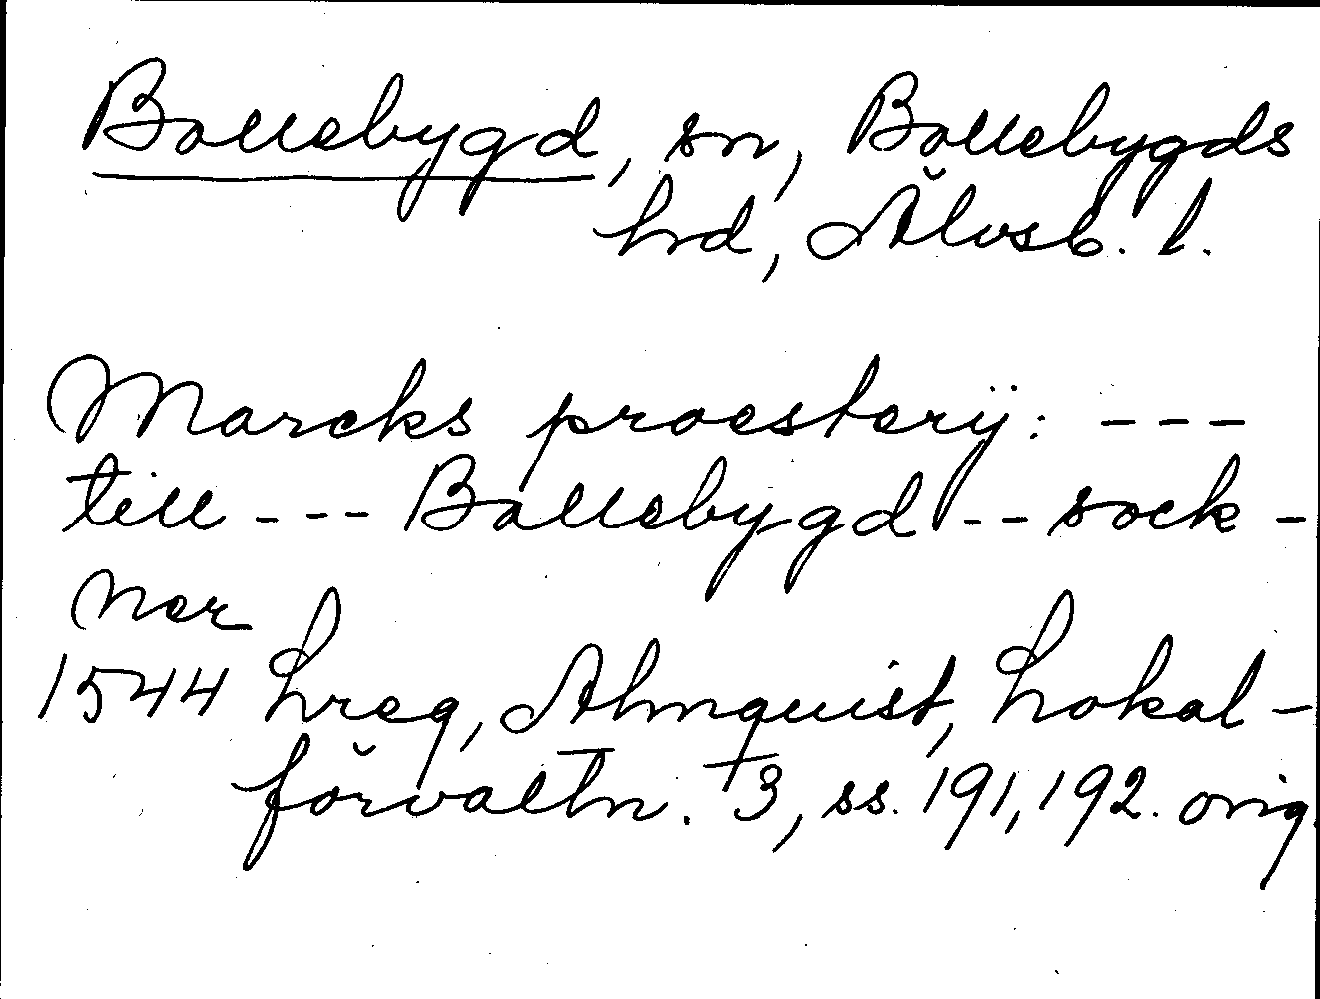 Bollebygd, sn, Bollebygds
hrd, Älvsb. l.
Marcks proesterij: ---
till --- Bollebygd -- sock-
ner
1544 Lreg, Almquist, Lokal-
förvaltn. 3, ss. 191, 192. orig.